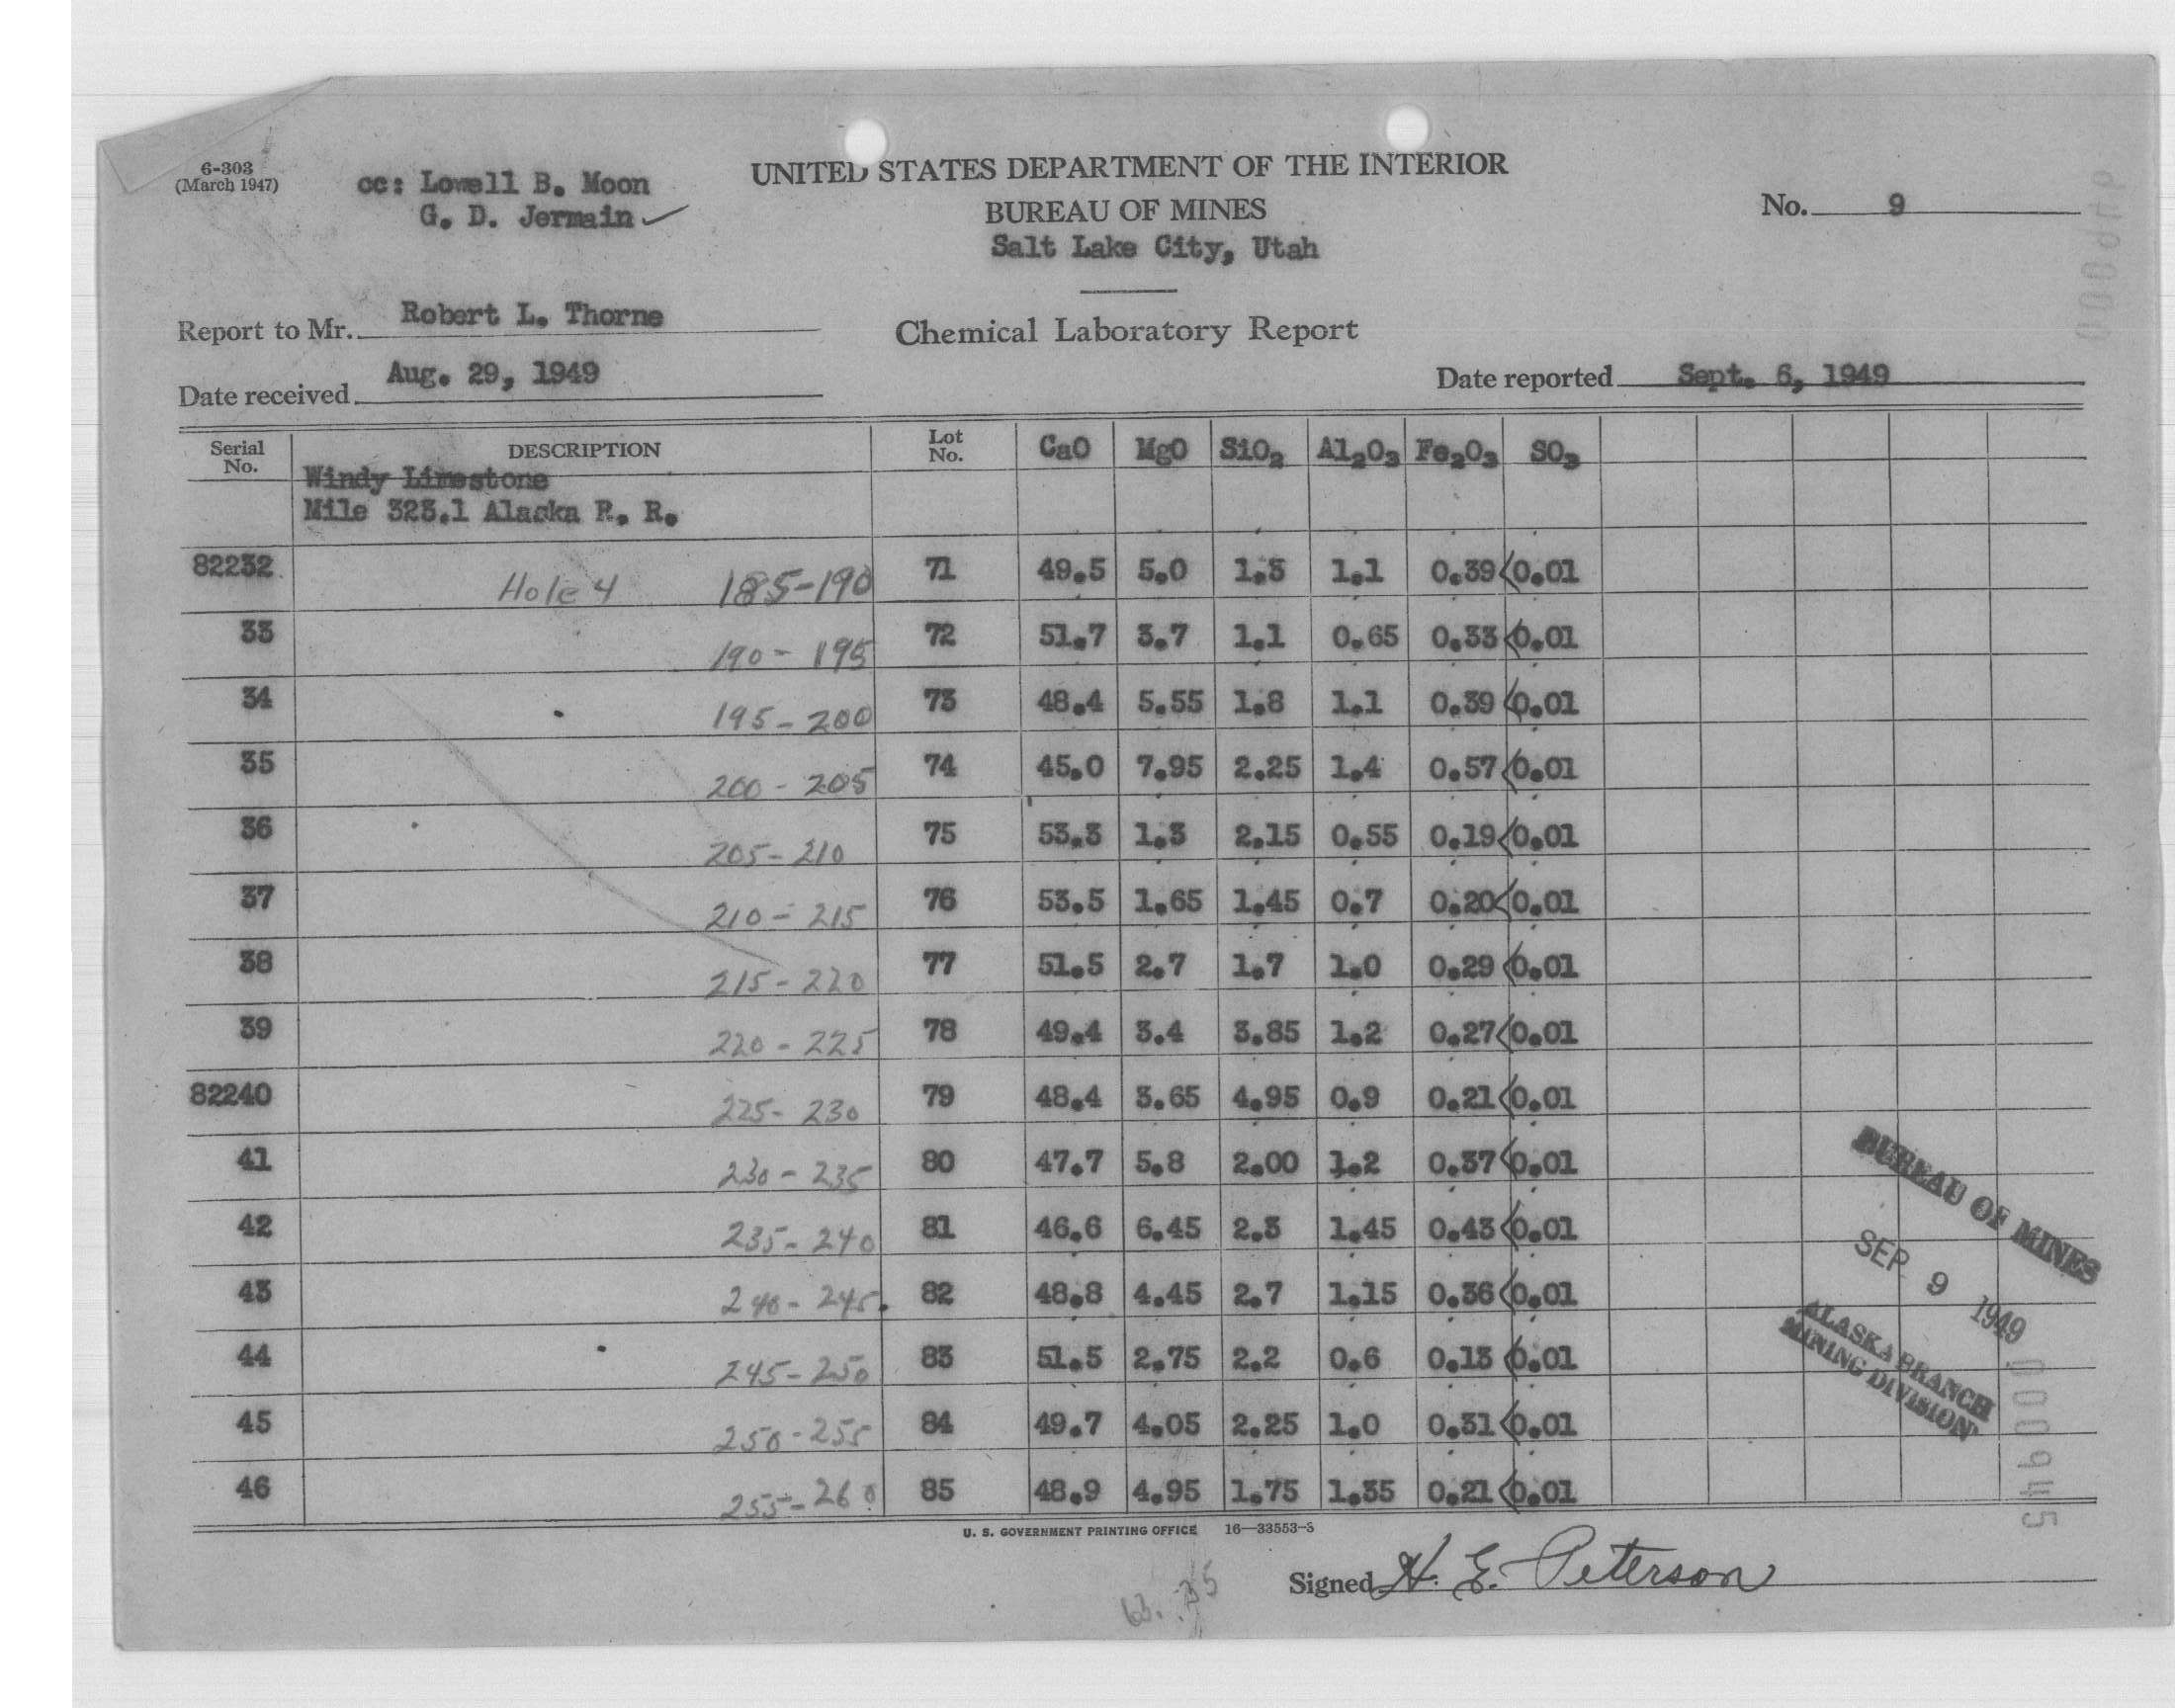 6-303
(March 1947)
cc: Lowell B. Moon
G. D. Jermain ✓
UNITED STATES DEPARTMENT OF THE INTERIOR
BUREAU OF MINES
Salt Lake City, Utah
No. 9
Report to Mr. Robert L. Thorne
Chemical Laboratory Report
Date received Aug. 29, 1949
Date reported Sept. 6, 1949
Serial No. DESCRIPTION Lot No. CaO MgO SiO2 Al2O3 Fe2O3 SO3
Windy Limestone
Mile 323.1 Alaska R. R.
82232 Hole 4 185-190 71 49.5 5.0 1.3 1.1 0.39 <0.01
33 190-195 72 51.7 3.7 1.1 0.65 0.33 <0.01
34 195-200 73 48.4 5.55 1.8 1.1 0.39 <0.01
35 200-205 74 45.0 7.95 2.25 1.4 0.57 <0.01
36 205-210 75 53.3 1.3 2.15 0.55 0.19 <0.01
37 210-215 76 53.5 1.65 1.45 0.7 0.20 <0.01
38 215-220 77 51.5 2.7 1.7 1.0 0.29 <0.01
39 220-225 78 49.4 3.4 3.85 1.2 0.27 <0.01
82240 225-230 79 48.4 3.65 4.95 0.9 0.21 <0.01
41 230-235 80 47.7 5.8 2.00 1.2 0.37 <0.01
42 235-240 81 46.6 6.45 2.3 1.45 0.43 <0.01
43 240-245 82 48.8 4.45 2.7 1.15 0.36 <0.01
44 245-250 83 51.5 2.75 2.2 0.6 0.13 <0.01
45 250-255 84 49.7 4.05 2.25 1.0 0.31 <0.01
46 255-260 85 48.9 4.95 1.75 1.35 0.21 <0.01
BUREAU OF MINES
SEP 9 1949
ALASKA BRANCH
MINING DIVISION
000945
U. S. GOVERNMENT PRINTING OFFICE 16—33553-3
Signed H. E. Peterson